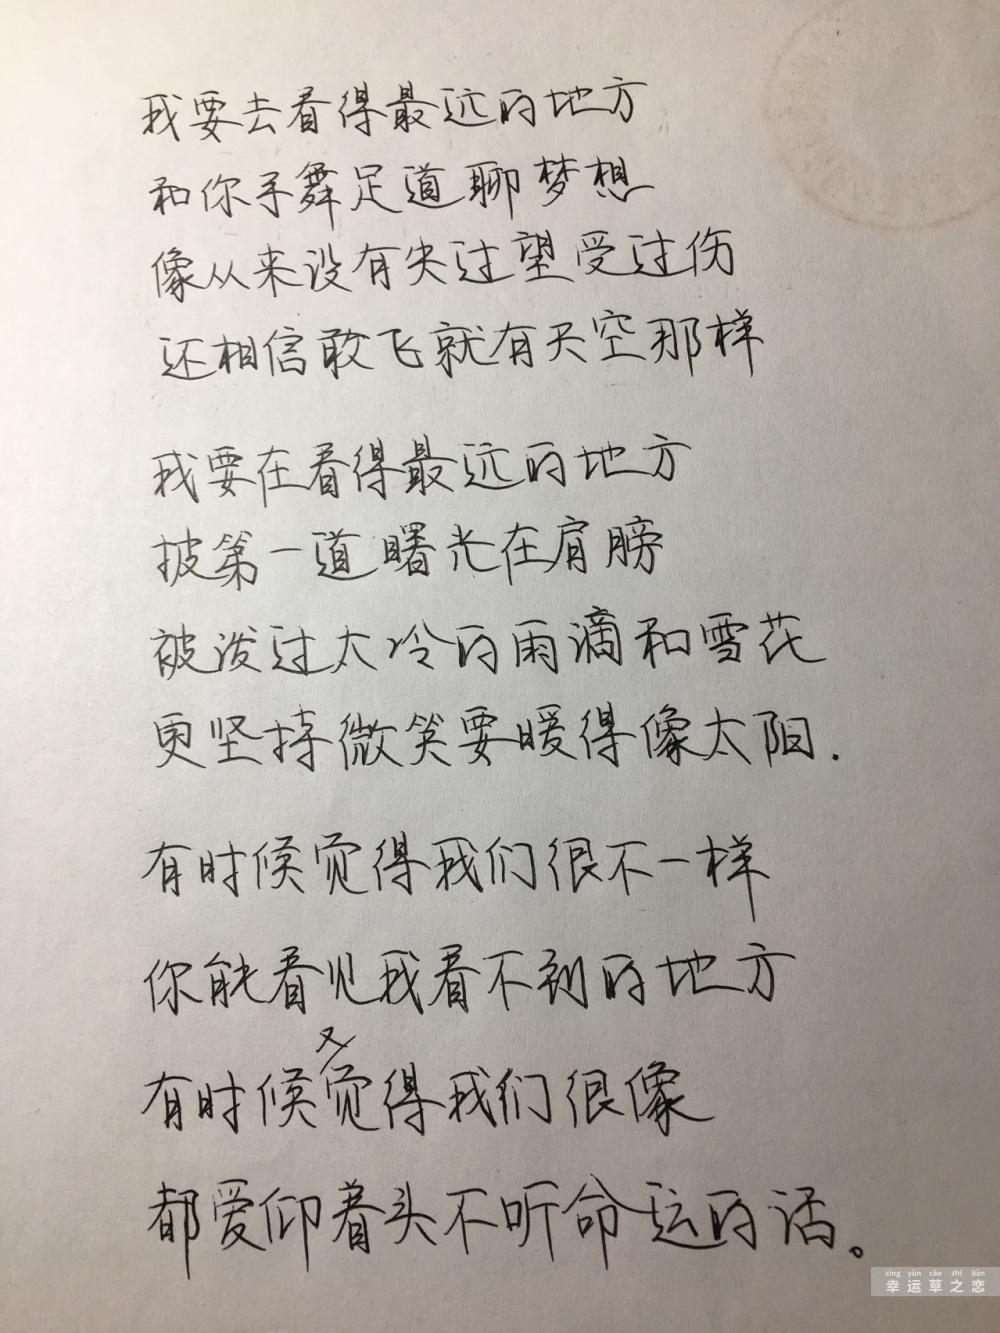 我要去看得最远的地方
和你手舞足道聊梦想
像从来没有失过望受过伤
还相信敢飞就有天空那样
我要在看得最远的地方
披第一道曙光在肩膀
被泼过太冷的雨滴和雪花
更坚持微笑要暖得像太阳.
有时候觉得我们很不一样
你能看见我看不到的地方
有时候又觉得我们很像
都爱仰着头不听命运的话。
xìng yùn cǎo zhī liàn
幸运草之恋